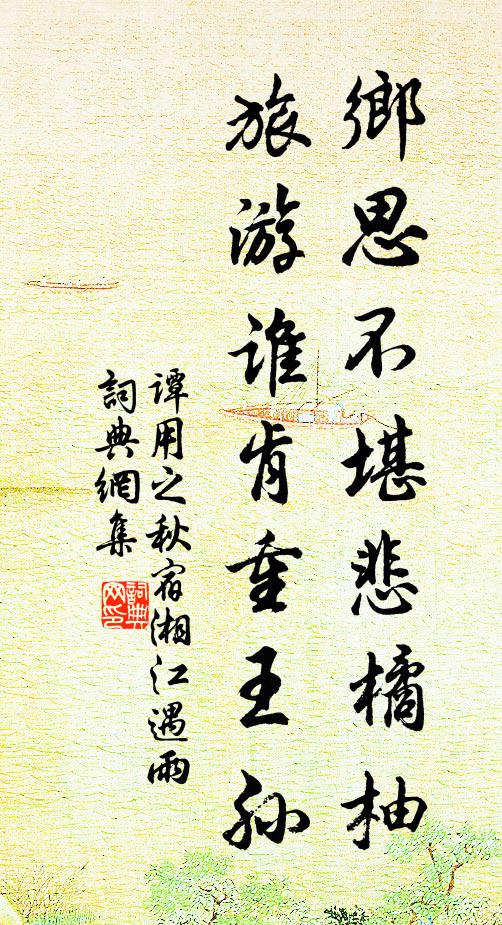 鄉思不堪悲橘柚
旅游誰肯重王孫
譚用之秋宿湘江遇雨
詞典網集
詞典
网印